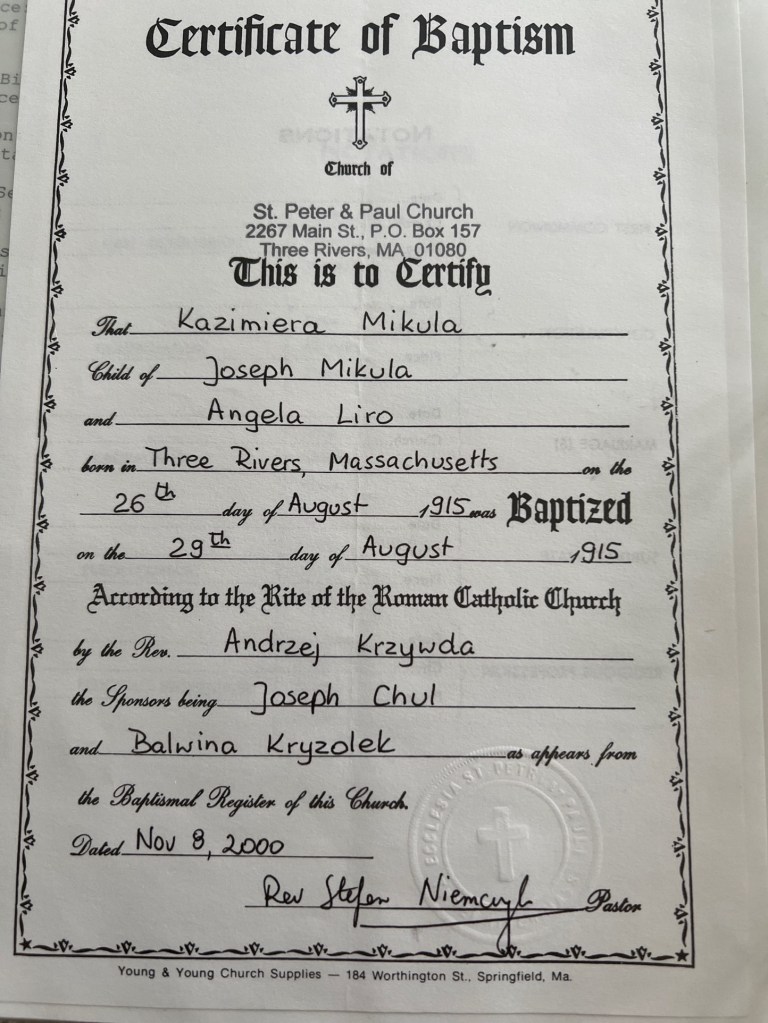 Certificate of Baptism
Church of
St. Peter & Paul Church
2267 Main St., P.O. Box 157
Three Rivers, MA 01080
This is to Certify
That Kazimiera Mikula
Child of Joseph Mikula
and Angela Liro
born in Three Rivers, Massachusetts on the
26th day of August 1915 was Baptized
on the 29th day of August 1915
According to the Rite of the Roman Catholic Church
by the Rev. Andrzej Krzywda
the Sponsors being Joseph Chul
and Balwina Kryzolek as appears from
the Baptismal Register of this Church.
Dated Nov 8, 2000
Rev Stefan Niemczyk Pastor
Young & Young Church Supplies — 184 Worthington St., Springfield, Ma.